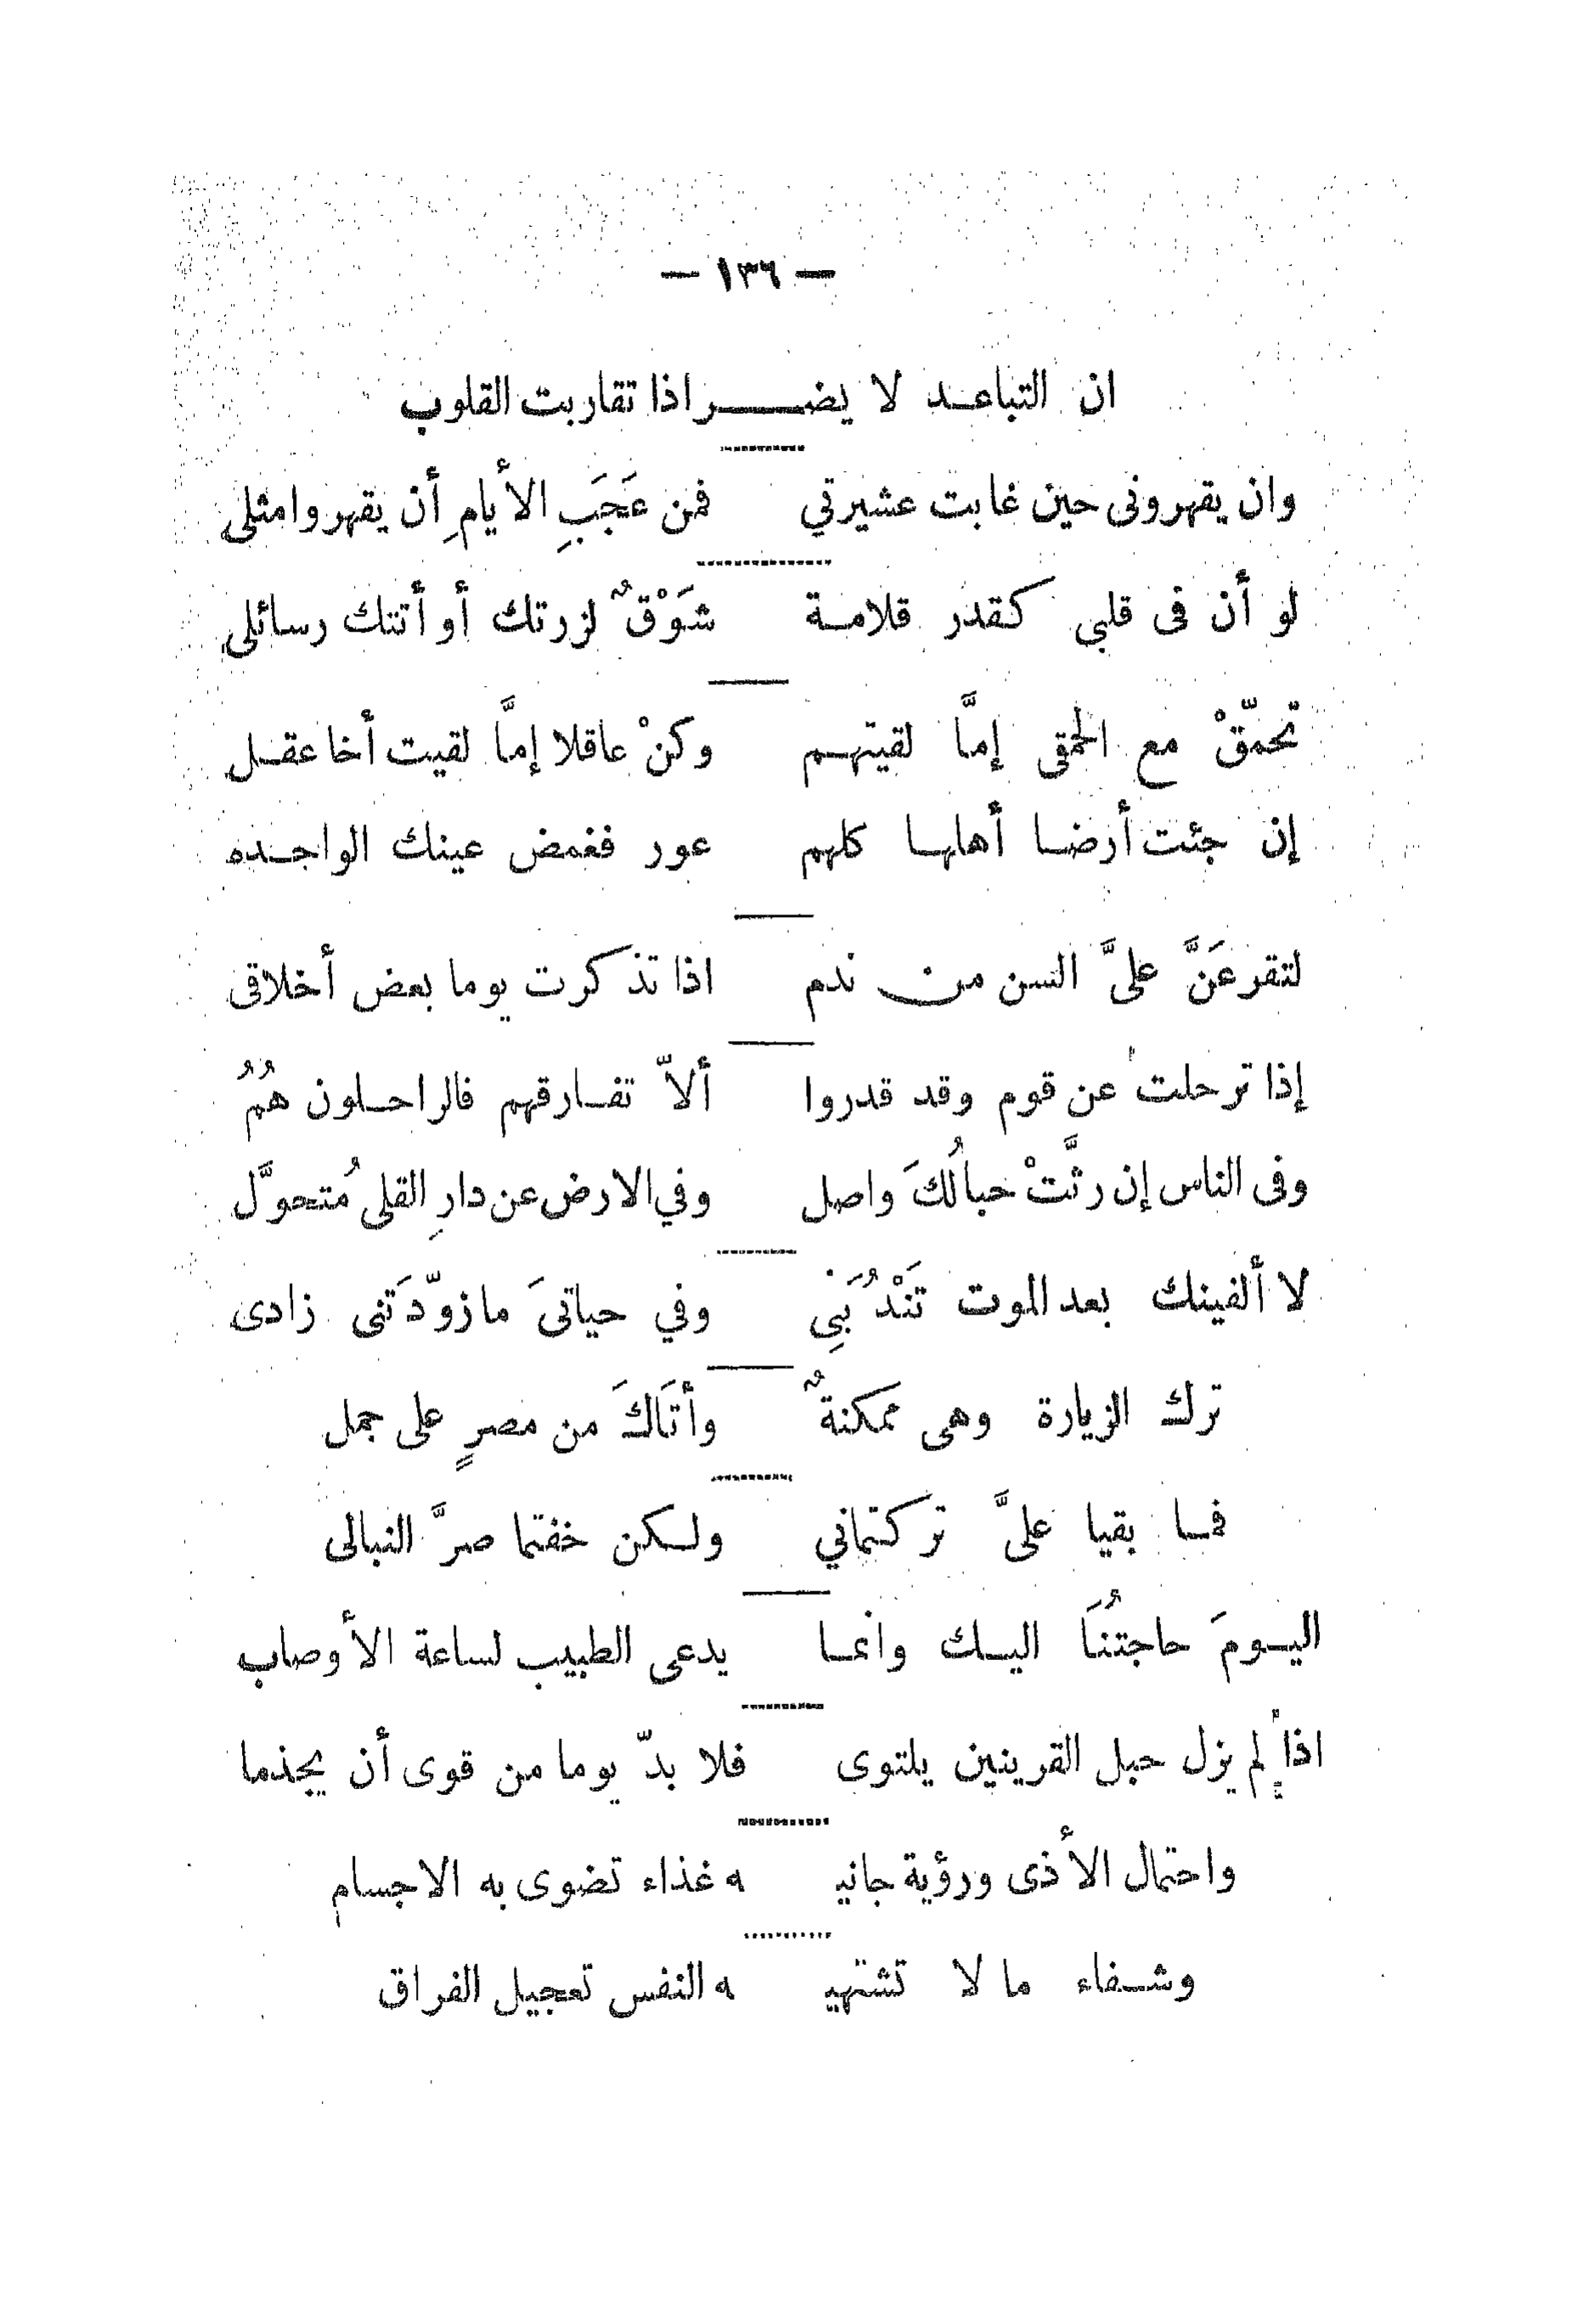 — ١٣٦ —
ان التباعد لا يضر اذا تقاربت القلوب
وان يقهرونى حين غابت عشيرتي فمن عَجَبِ الأيامِ أن يقهروا مثلى
لو أن فى قلبى كقدر قلامة شَوْقٌ لزرتك أو أتتك رسائلى
تحمّقْ مع الحمقى إمَّا لقيتهم وكنْ عاقلا إمَّا لقيت أخا عقل
إن جئت أرضا أهلها كلهم عور فغمض عينك الواحده
لتقرعَنَّ علىَّ السن من ندم اذا تذكرت يوما بعض أخلاقى
إذا ترحلت عن قوم وقد قدروا ألاّ تفارقهم فالراحلون هُمُ
وفى الناس إن رثَّتْ حبالُكَ واصل وفي الارض عن دارِ القلى مُتحوَّل
لا ألفينك بعد الموت تَنْدُبَنِي وفي حياتىَ ما زوّدَتنى زادى
ترك الزيارة وهى ممكنةٌ وأتَاكَ من مصرٍ على جمل
فما بقيا علىَّ تركتماني ولكن خفتما صرَّ النبالى
اليومَ حاجتُنَا اليك وانما يدعى الطبيب لساعة الأوصاب
اذا لم يزل حبل القرينين يلتوى فلا بدّ يوما من قوى أن يجذما
واحتمال الأذى ورؤية جانيـ ـه غذاء تضوى به الاجسام
وشفاء ما لا تشتهيـ ـه النفس تعجيل الفراق